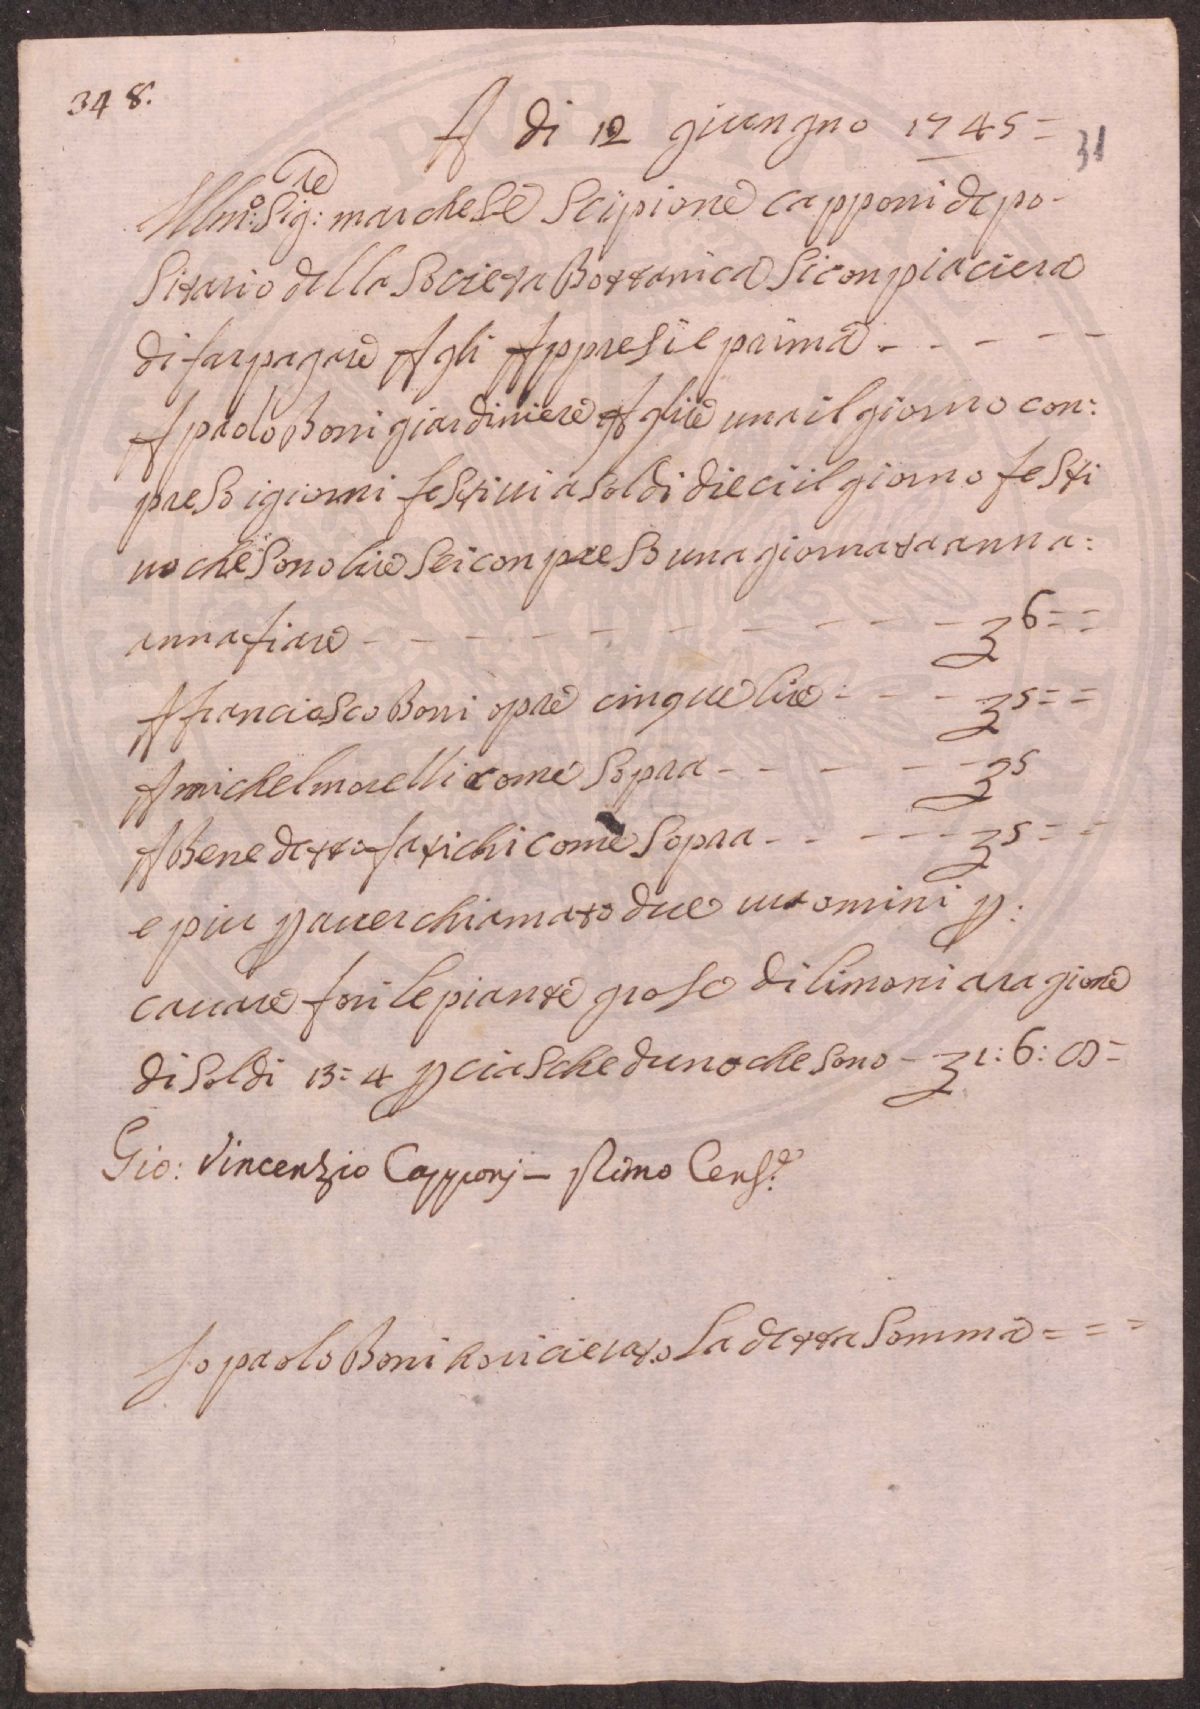 348.
A di 12 giungno 1745=
31
Illmo: Sigre: marchese Scipione capponi depo-
Sitario della Societa Bottanica Siconpiaciera
di far pagare Agli Appresi e prima - - - - -
A paolo Boni giardiniere A lire una il giorno con:
preso i giorni festiui a soldi dieci il giorno festi
uo che sono lire sei con preso una giornata anna:
annafiare - - - - - - - - - - - 6==
A franciesco Boni opre cinque lire: - - - 5==
A michel morelli come sopra - - - - - - 5
A Benedetto fatichi come sopra - - - - - - 5==
e piu p auer chiamato due uuomini p:
cauare fori le piante grose di limoni aragione
di soldi 13=4 p ciascheduno che sono - 1:6:8=
Gio: Vincenzio Capponj — Primo Cens.e
Io paolo Boni o ricieuto la detta somma = = =